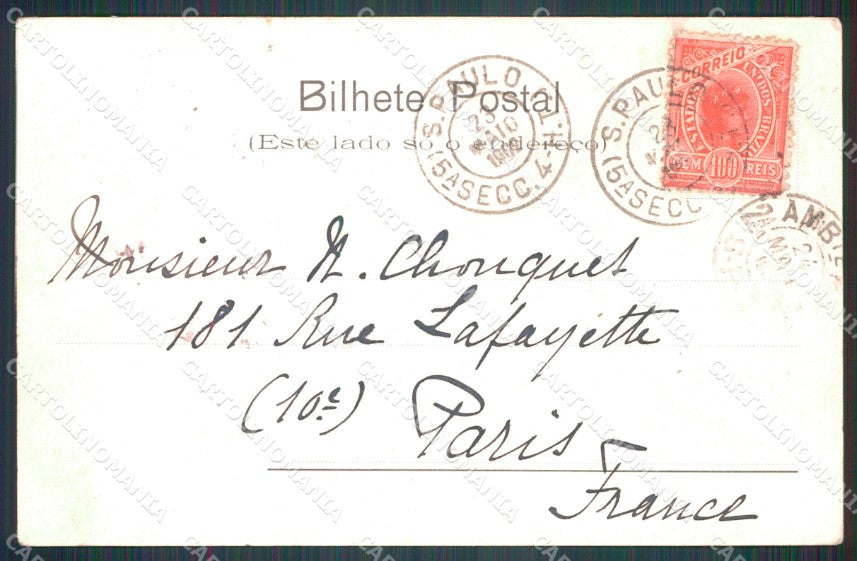 Bilhete Postal
(Este lado só o endereço)
S. PAULO
23
MAIO
(5ª SECC. 4-H.T.)
S. PAU
23
(5ª SECC
CORREIO
ESTADOS UNIDOS BRAZIL
100 REIS
AMB
24
MA
Monsieur N. Chouquet
181 Rue Lafayette
(10e)
Paris
France
CARTOLINOMANIA